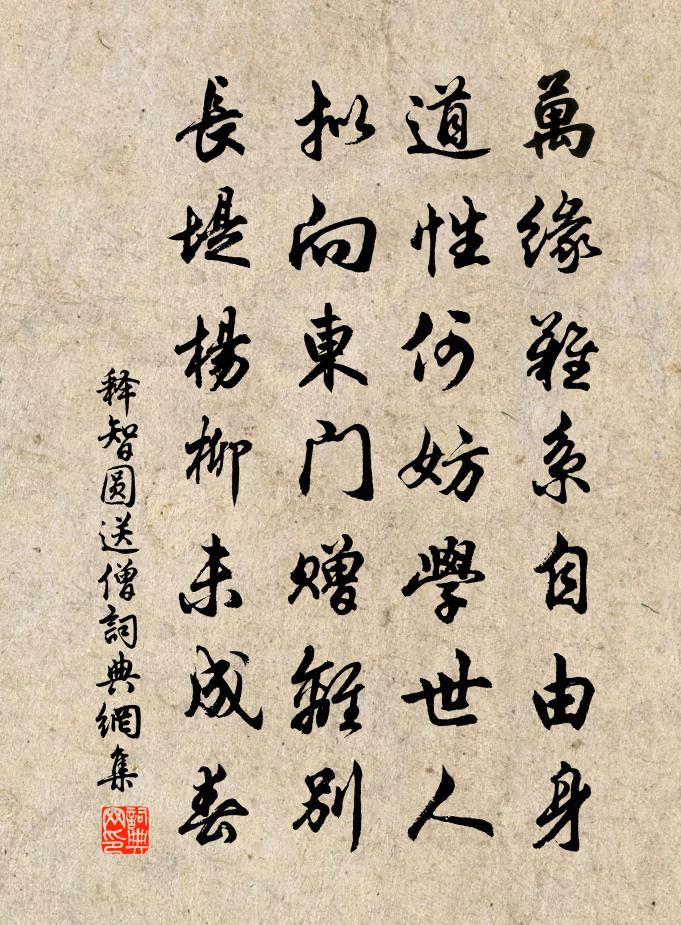 萬緣難系自由身
道性何妨學世人
拟向東门贈離别
長堤楊柳未成春
释智圆送僧詞典網集
詞典网印